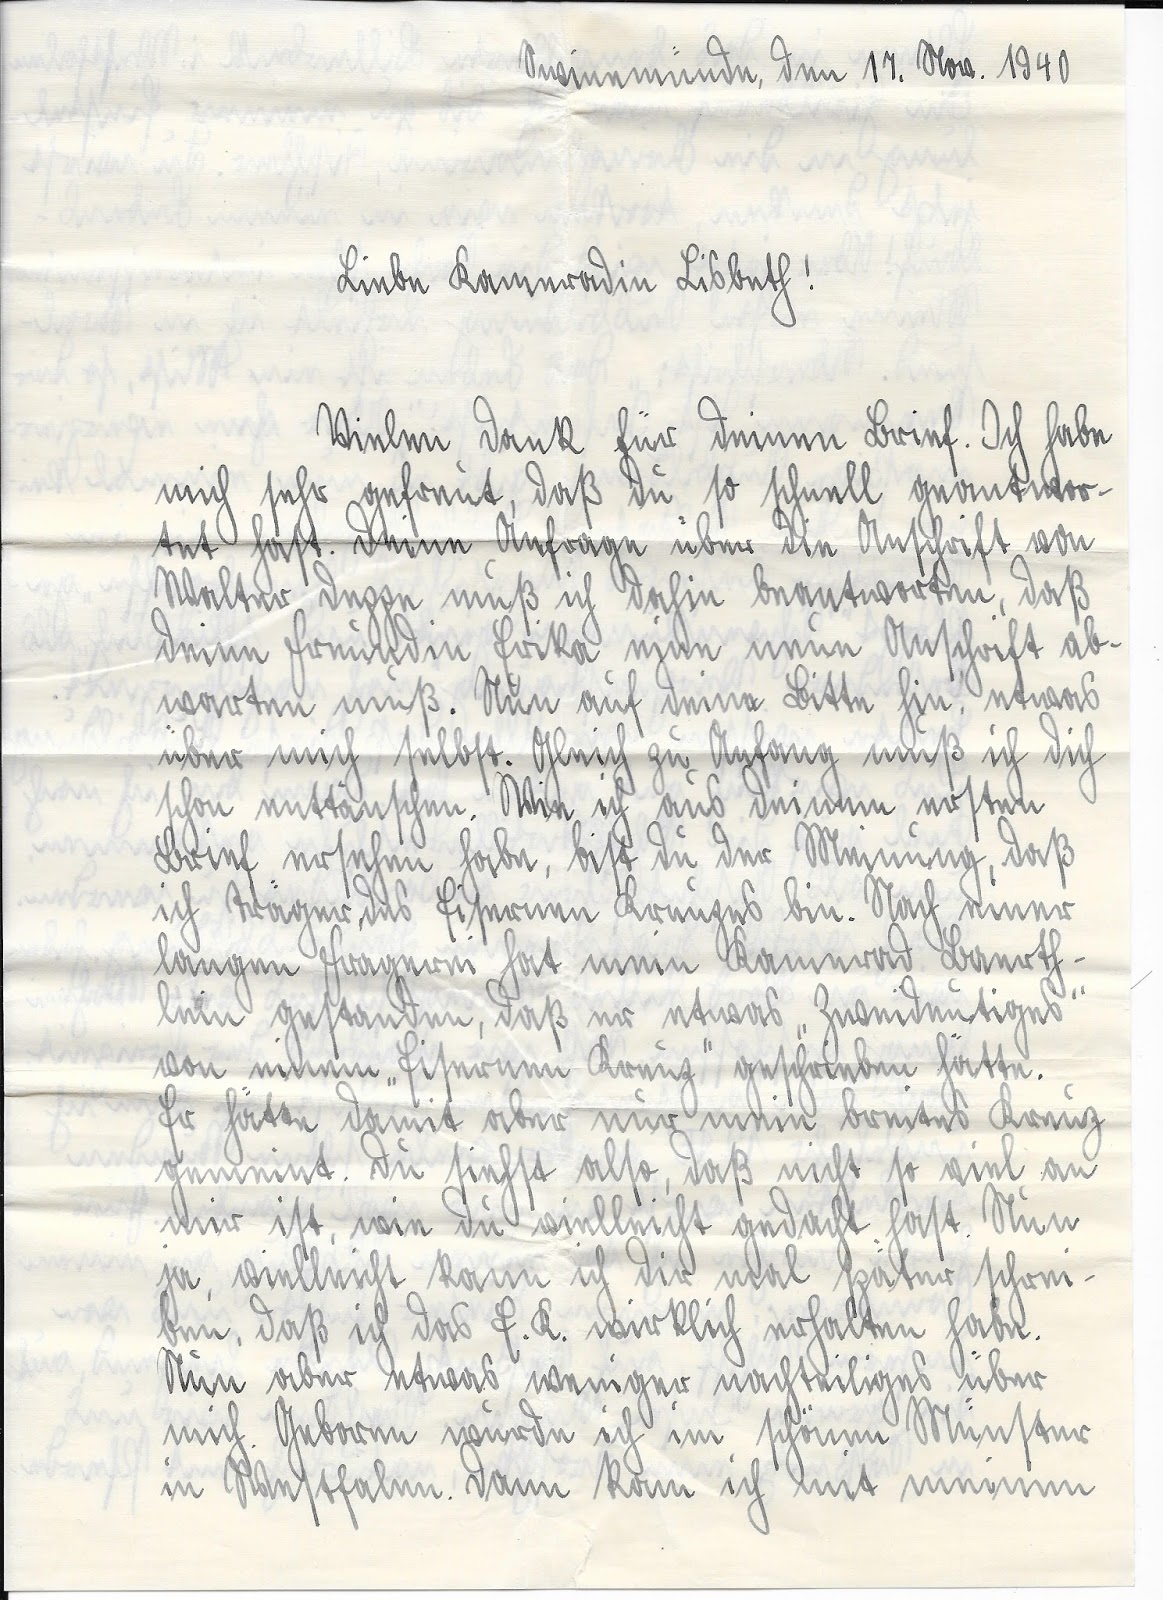 Swinemünde, den 17. Nov. 1940
Liebe Kameradin Lisbeth!
Vielen Dank für deinen Brief. Ich habe
mich sehr gefreut, daß du so schnell geantwor-
tet hast. Deine Anfrage über die Anschrift von
Walter Deppe muß ich dahin beantworten, daß
deine Freundin Erika eine neue Anschrift ab-
warten muß. Nun auf deine Bitte hin, etwas
über mich selbst. Gleich zu Anfang muß ich dich
schon enttäuschen. Wie ich aus deinem ersten
Brief ersehen habe, bist du der Meinung, daß
ich Träger des Eisernen Kreuzes bin. Nach einer
langen Fragerei hat mein Kamerad Baerth-
lein gestanden, daß er etwas „Zweideutiges"
von einem „Eisernen Kreuz" geschrieben hätte.
Er hätte damit aber nur mein breites Kreuz
gemeint. Du siehst also, daß nicht so viel an
mir ist, wie du vielleicht gedacht hast. Nun
ja, vielleicht kann ich dir mal später schrei-
ben, daß ich das E.K. wirklich erhalten habe.
Nun aber etwas weniger nachteiliges über
mich. Geboren wurde ich im schönen Münster
in Westfalen. Dann kam ich mit meinen